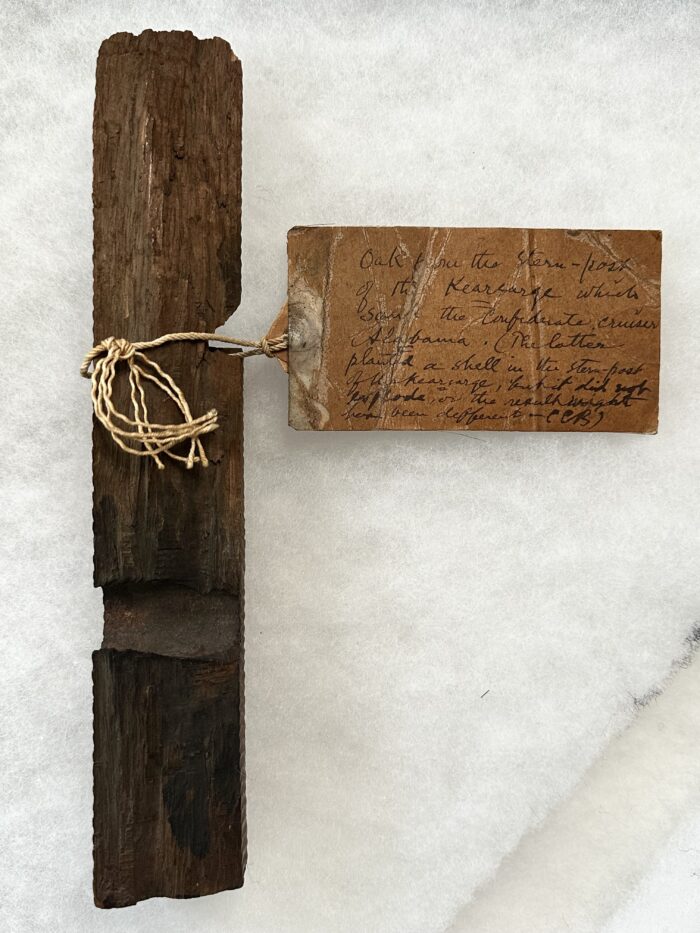 Oak from the stern-post
of the Kearsarge which
sank the Confederate cruiser
Alabama. (The latter
planted a shell in the stern-post
of the Kearsarge, but it did not
explode, or the result might
have been different - CCB)